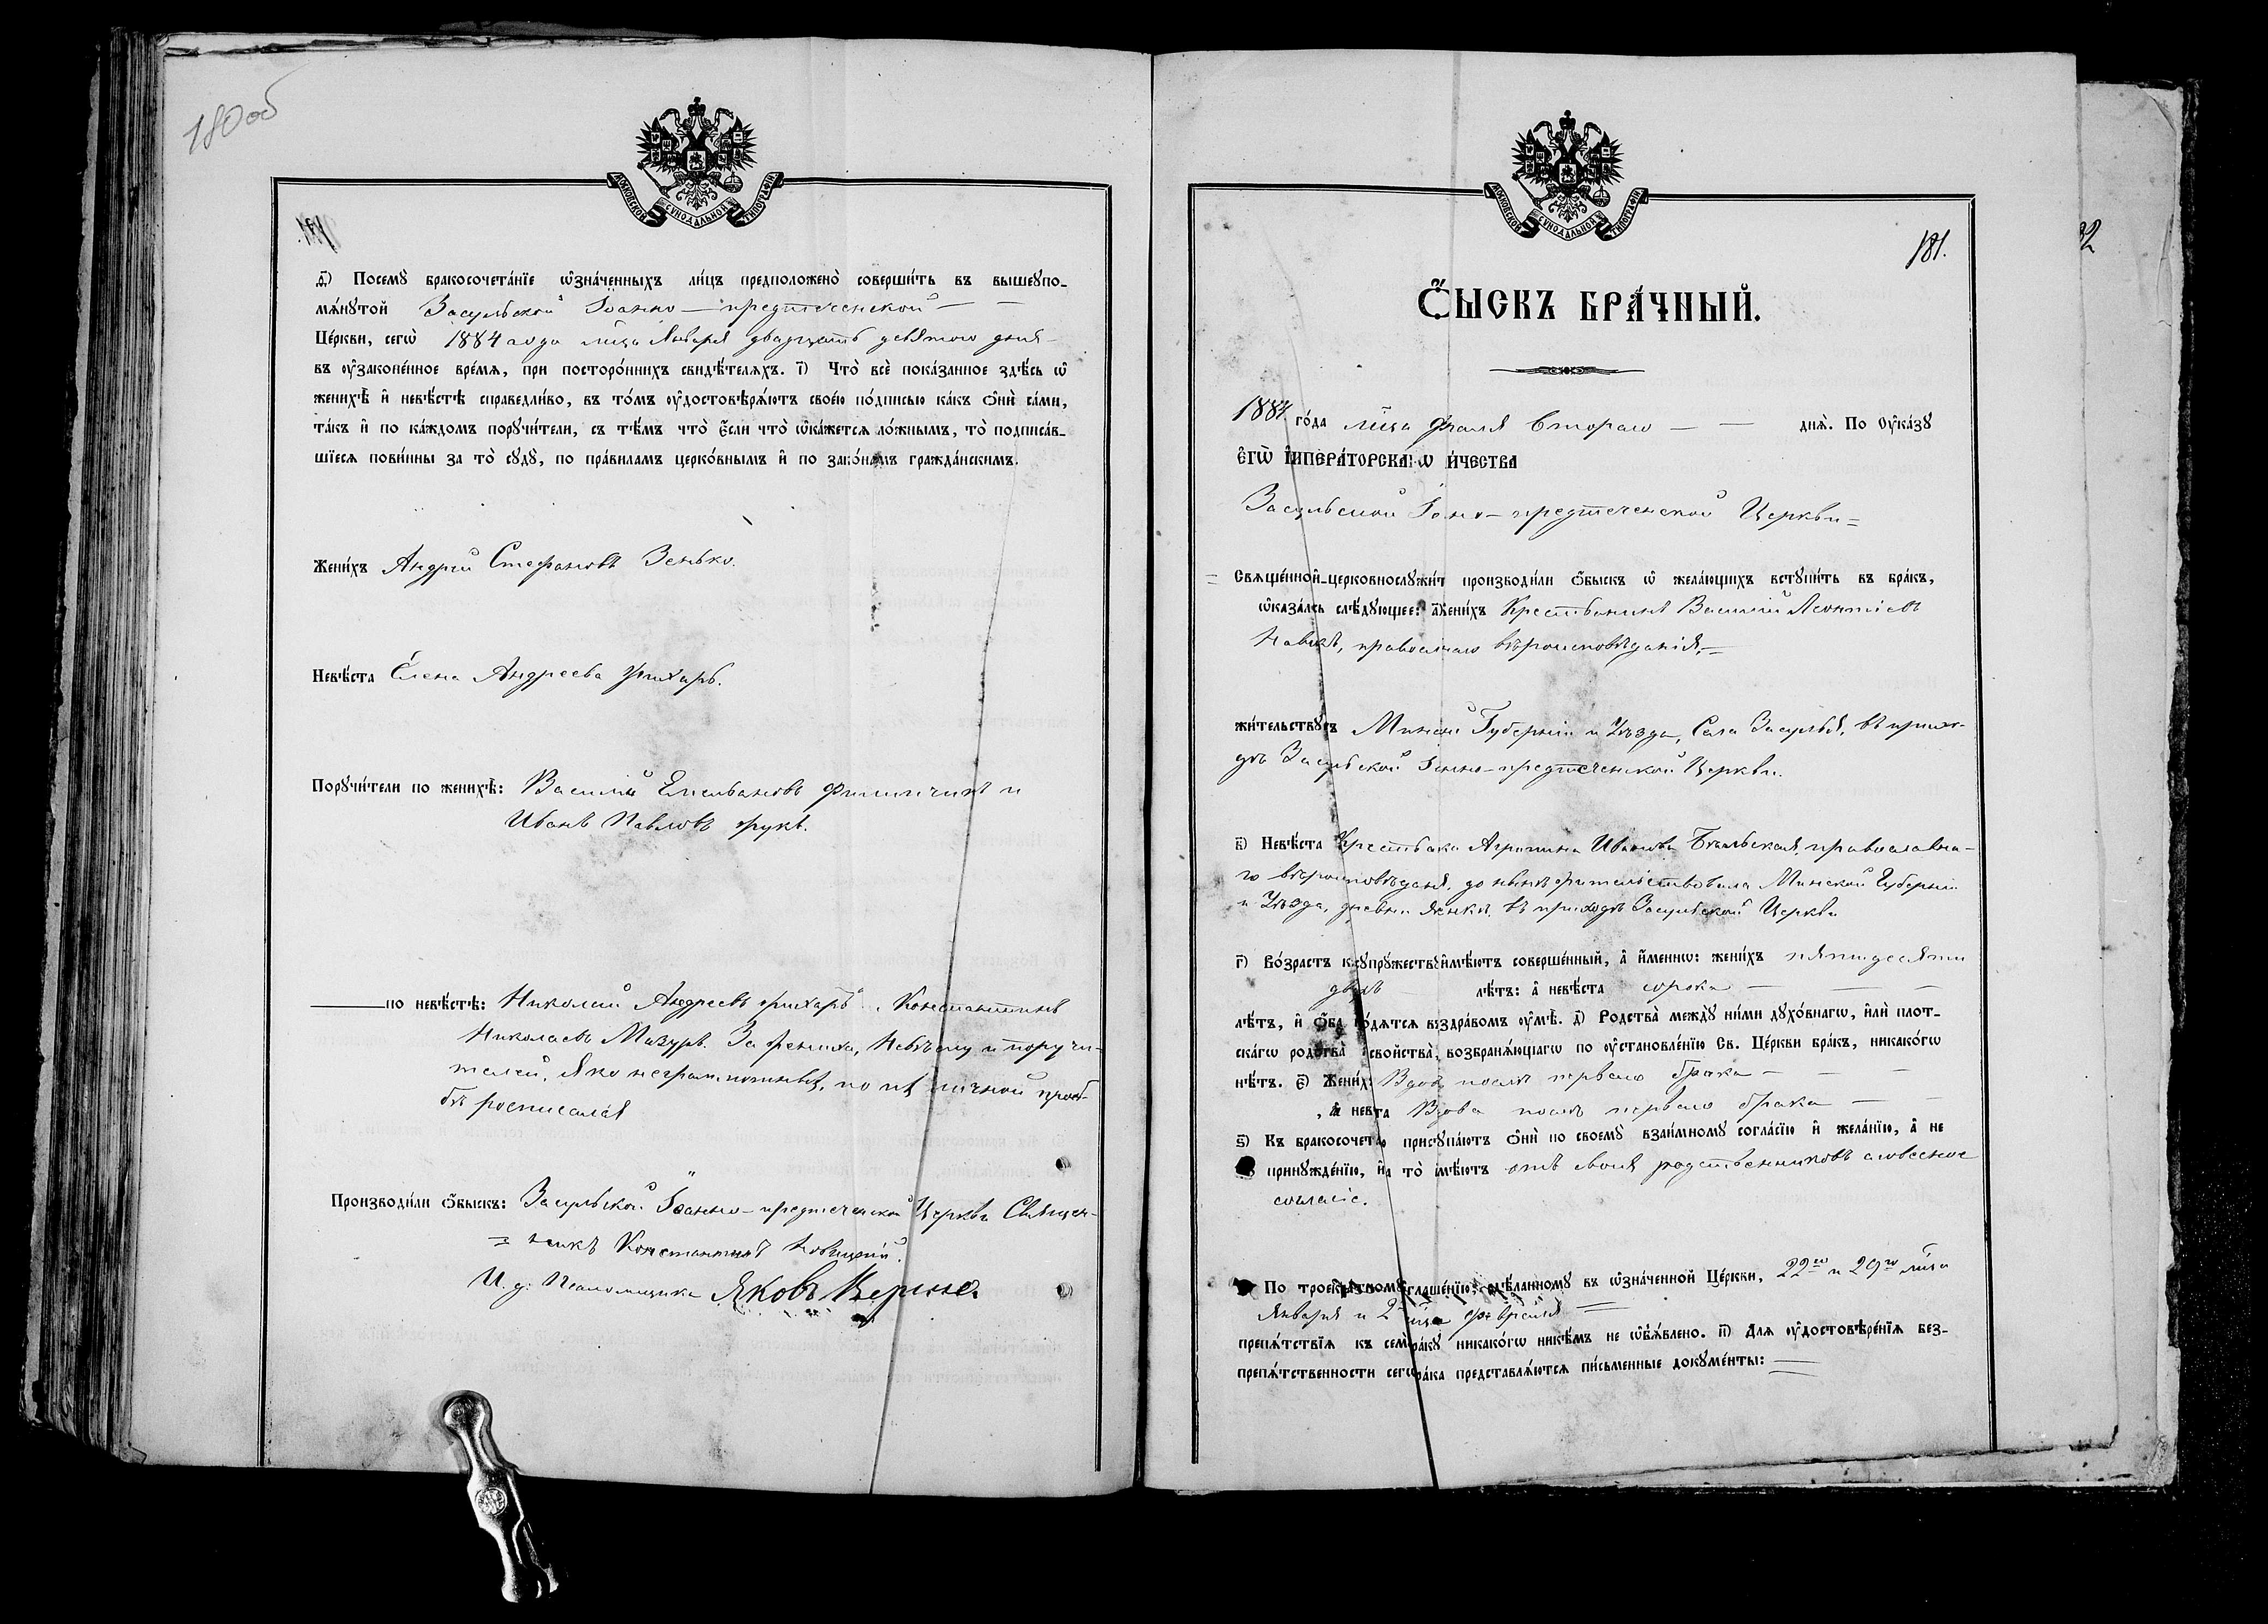 180 об
МОСКОВСКОЙ СУНОДАЛЬНОЙ ТИПОГРАФІИ
181.
д҃) Посемꙋ̀ бракосочета́нїе ѡ҆зна́ченныхъ ли́цъ предположено̀ соверши́ть въ вышеꙋпо-
мѧ́нꙋтой Засульской Іоанно-предтеченской
Це́ркви, сегѡ̀ 1884 года мца Января двадцать девятого дня
въ ᲂу҆законе́нное вре́мѧ, при посторо́ннихъ свидѣ́телѧхъ. і҃) Что̀ всѐ пока́занное здѣ́сь ѡ҆
женихѣ̀ и҆ невѣ́стѣ справедли́во, въ то́мъ ᲂу҆достовѣрѧ́ютъ свое́ю по́дписью ка́къ ѻ҆нѝ са́ми,
та́къ и҆ по ка́ждомъ порꙋчи́тели, съ тѣ́мъ что̀ є҆́сли что̀ ѡ҆ка́жетсѧ ло́жнымъ, то̀ подписа́в-
шїесѧ пови́нны за то̀ сꙋдꙋ̀, по пра́виламъ церко́внымъ и҆ по зако́намъ гражда́нскимъ.
Жени́хъ Андрей Стефановъ Зенько.
Невѣ́ста Елена Андреева
Порꙋчи́тели по женихѣ̀: Василій Емельяновъ и
Иванъ Павловъ
по невѣ́стѣ: Николай Андреевъ Константинъ
Николаевъ Мазуръ. За жениха, невѣсту и поручи-
телей, яко неграмотныхъ, по ихъ личной прось-
бѣ росписался
Производи́ли ѻ҆́быскъ: Засульской Іоанно-предтеченской Церкви Священ-
= никъ Константинъ Новицкій.
И. д. Псаломщика Яковъ
МОСКОВСКОЙ СУНОДАЛЬНОЙ ТИПОГРАФІИ
181.
82
Ѻ҆́БЫСКЪ БРА́ЧНЫЙ.
1884 го́да мца Второго — — днѧ̀. По ᲂу҆ка́зꙋ
Є҆ГѠ̀ И҆МПЕРА́ТОРСКАГѠ ВЕЛИ́ЧЕСТВА
Засульской Іоано-предтеченской Церкви =
= Свѧще́нно и҆ церковнослꙋжит производи́ли ѻ҆́быскъ ѡ҆ жела́ющихъ встꙋпи́ть въ бра́къ,
ѡ҆каза́лось слѣ́дꙋющее: а҃) Жени́хъ Крестьянинъ Василій Леонтіевъ
православнаго вѣроисповѣданія,—
жи́тельствꙋетъ Минской Губерніи и Уѣзда, Села Засулья, въ прихо-
дѣ Засульской Іоанно-предтеченской Церкви.
в҃) Невѣ́ста Крестьянка Агрипина Иванова Бѣльская, православна-
го вѣроисповѣданія, до нынѣ жительствовала Минской Губерніи
и Уѣзда, въ приходѣ Засульской Церкви
г҃) Во́зрастъ к сꙋпрꙋ́жествꙋ и҆мѣ́ютъ соверше́нный, а҆ и҆́менно: жени́хъ пятидесяти
двухъ лѣ́тъ: а҆ невѣ́ста сорока — — —
лѣ́тъ, и҆ ѻ҆́ба нахо́дѧтсѧ въ здра́вомъ ᲂу҆мѣ̀. д҃) Родства̀ междꙋ̀ ни́ми дꙋхо́внагѡ, и҆лѝ плот-
ска́гѡ родства̀ и҆ свойства̀, возбранѧ́ющагѡ по ᲂу҆становле́нїю Св. Це́ркви бра́къ, никако́гѡ
нѣ́тъ. є҃) Жени́х Вдовъ послѣ перваго брака — — —
, а҆ невѣ́ста Вдова послѣ перваго брака — —
ѕ҃) Къ бракосочета́нїю пристꙋпа́ютъ ѻ҆нѝ по своемꙋ̀ взаи́мномꙋ согла́сїю и҆ жела́нїю, а҆ не
по принꙋжде́нїю, и҆ на то̀ и҆мѣ́ютъ отъ своихъ родственниковъ словесное
согласіе.
По троекра́тномꙋ ѡ҆глаше́нїю, сдѣ́ланномꙋ въ ѡ҆зна́ченной Це́ркви, 22го и 29го мца
Января и 2 мца февраля —
препѧ́тствїѧ къ семꙋ̀ бра́кꙋ никако́гѡ никѣ́мъ не ѡ҆б̾ѧ́влено. и҃) Длѧ ᲂу҆достовѣре́нїѧ без-
препѧ́тственности сегѡ̀ бра́ка представлѧ́ютсѧ пи́сьменные докꙋме́нты: —